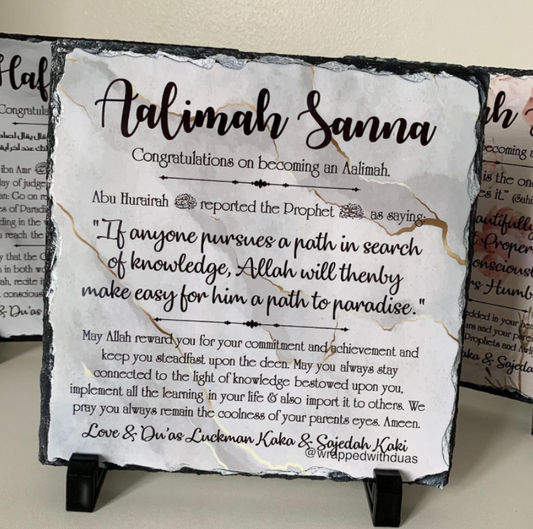 Aalimah Sanna
Congratulations on becoming an Aalimah.
Abu Hurairah reported the Prophet ﷺ as saying:
"If anyone pursues a path in search
of knowledge, Allah will thenby
make easy for him a path to paradise."
May Allah reward you for your commitment and achievement and
keep you steadfast upon the deen. May you always stay
connected to the light of knowledge bestowed upon you,
implement all the learning in your life & also import it to others. We
pray you always remain the coolness of your parents eyes. Ameen.
Love & Du'as Luckman Kaka & Sajedah Kaki
@wrappedwithduas
Haf
Congratula
ibn Amr
lay of judge
an: Go on re
es of Paradi
ding in the w
reach the
y that the
in both w
ah, recite i
conscious
& Du'as
h
becoming
is the one
es it."
autifully
Proper
onsciousl
rs Humb
edded in your
urs and your paren
Prophets and Awl
aka & Sajeda